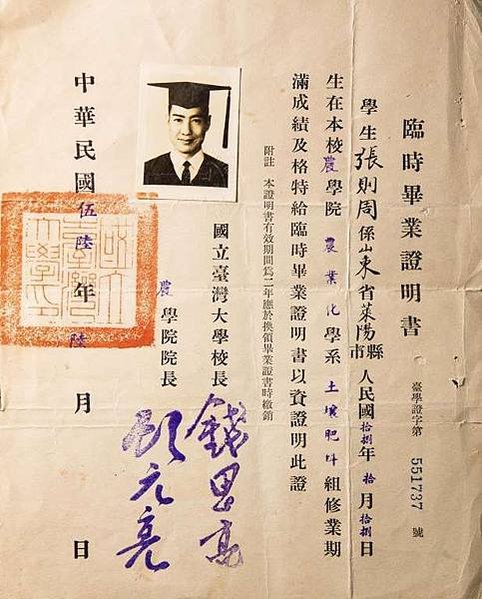 臨時畢業證明書
臺學證字第551737號
學生張則周係山東省萊陽縣市人民國拾捌年拾月拾捌日
生在本校農學院農業化學系土壤肥料組修業期
滿成績及格特給臨時畢業證明書以資證明此證
附註 本證明書有效期間為二年應於換領畢業證書時繳銷
國立臺灣大學校長 錢思亮
農學院院長 顧元亮
中華民國伍陸年陸月 日
國立臺灣大學印